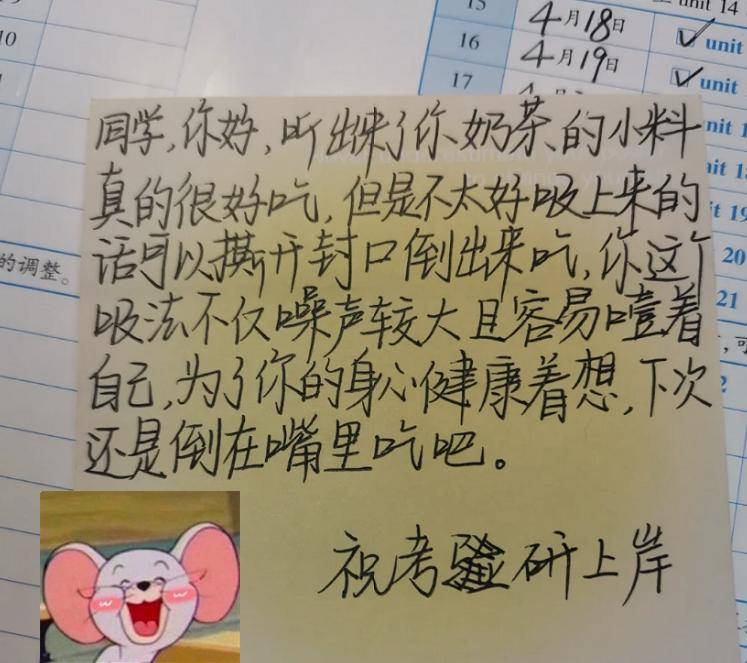 15
16 4月18日 unit
17 4月19日 unit
unit 14
10
的调整。
20
21
同学,你好,听出来了你奶茶的小料
真的很好吃,但是不太好吸上来的
话可以撕开封口倒出来吃,你这个
吸法不仅噪声较大且容易噎着
自己,为了你的身心健康着想,下次
还是倒在嘴里吃吧。
祝考研上岸